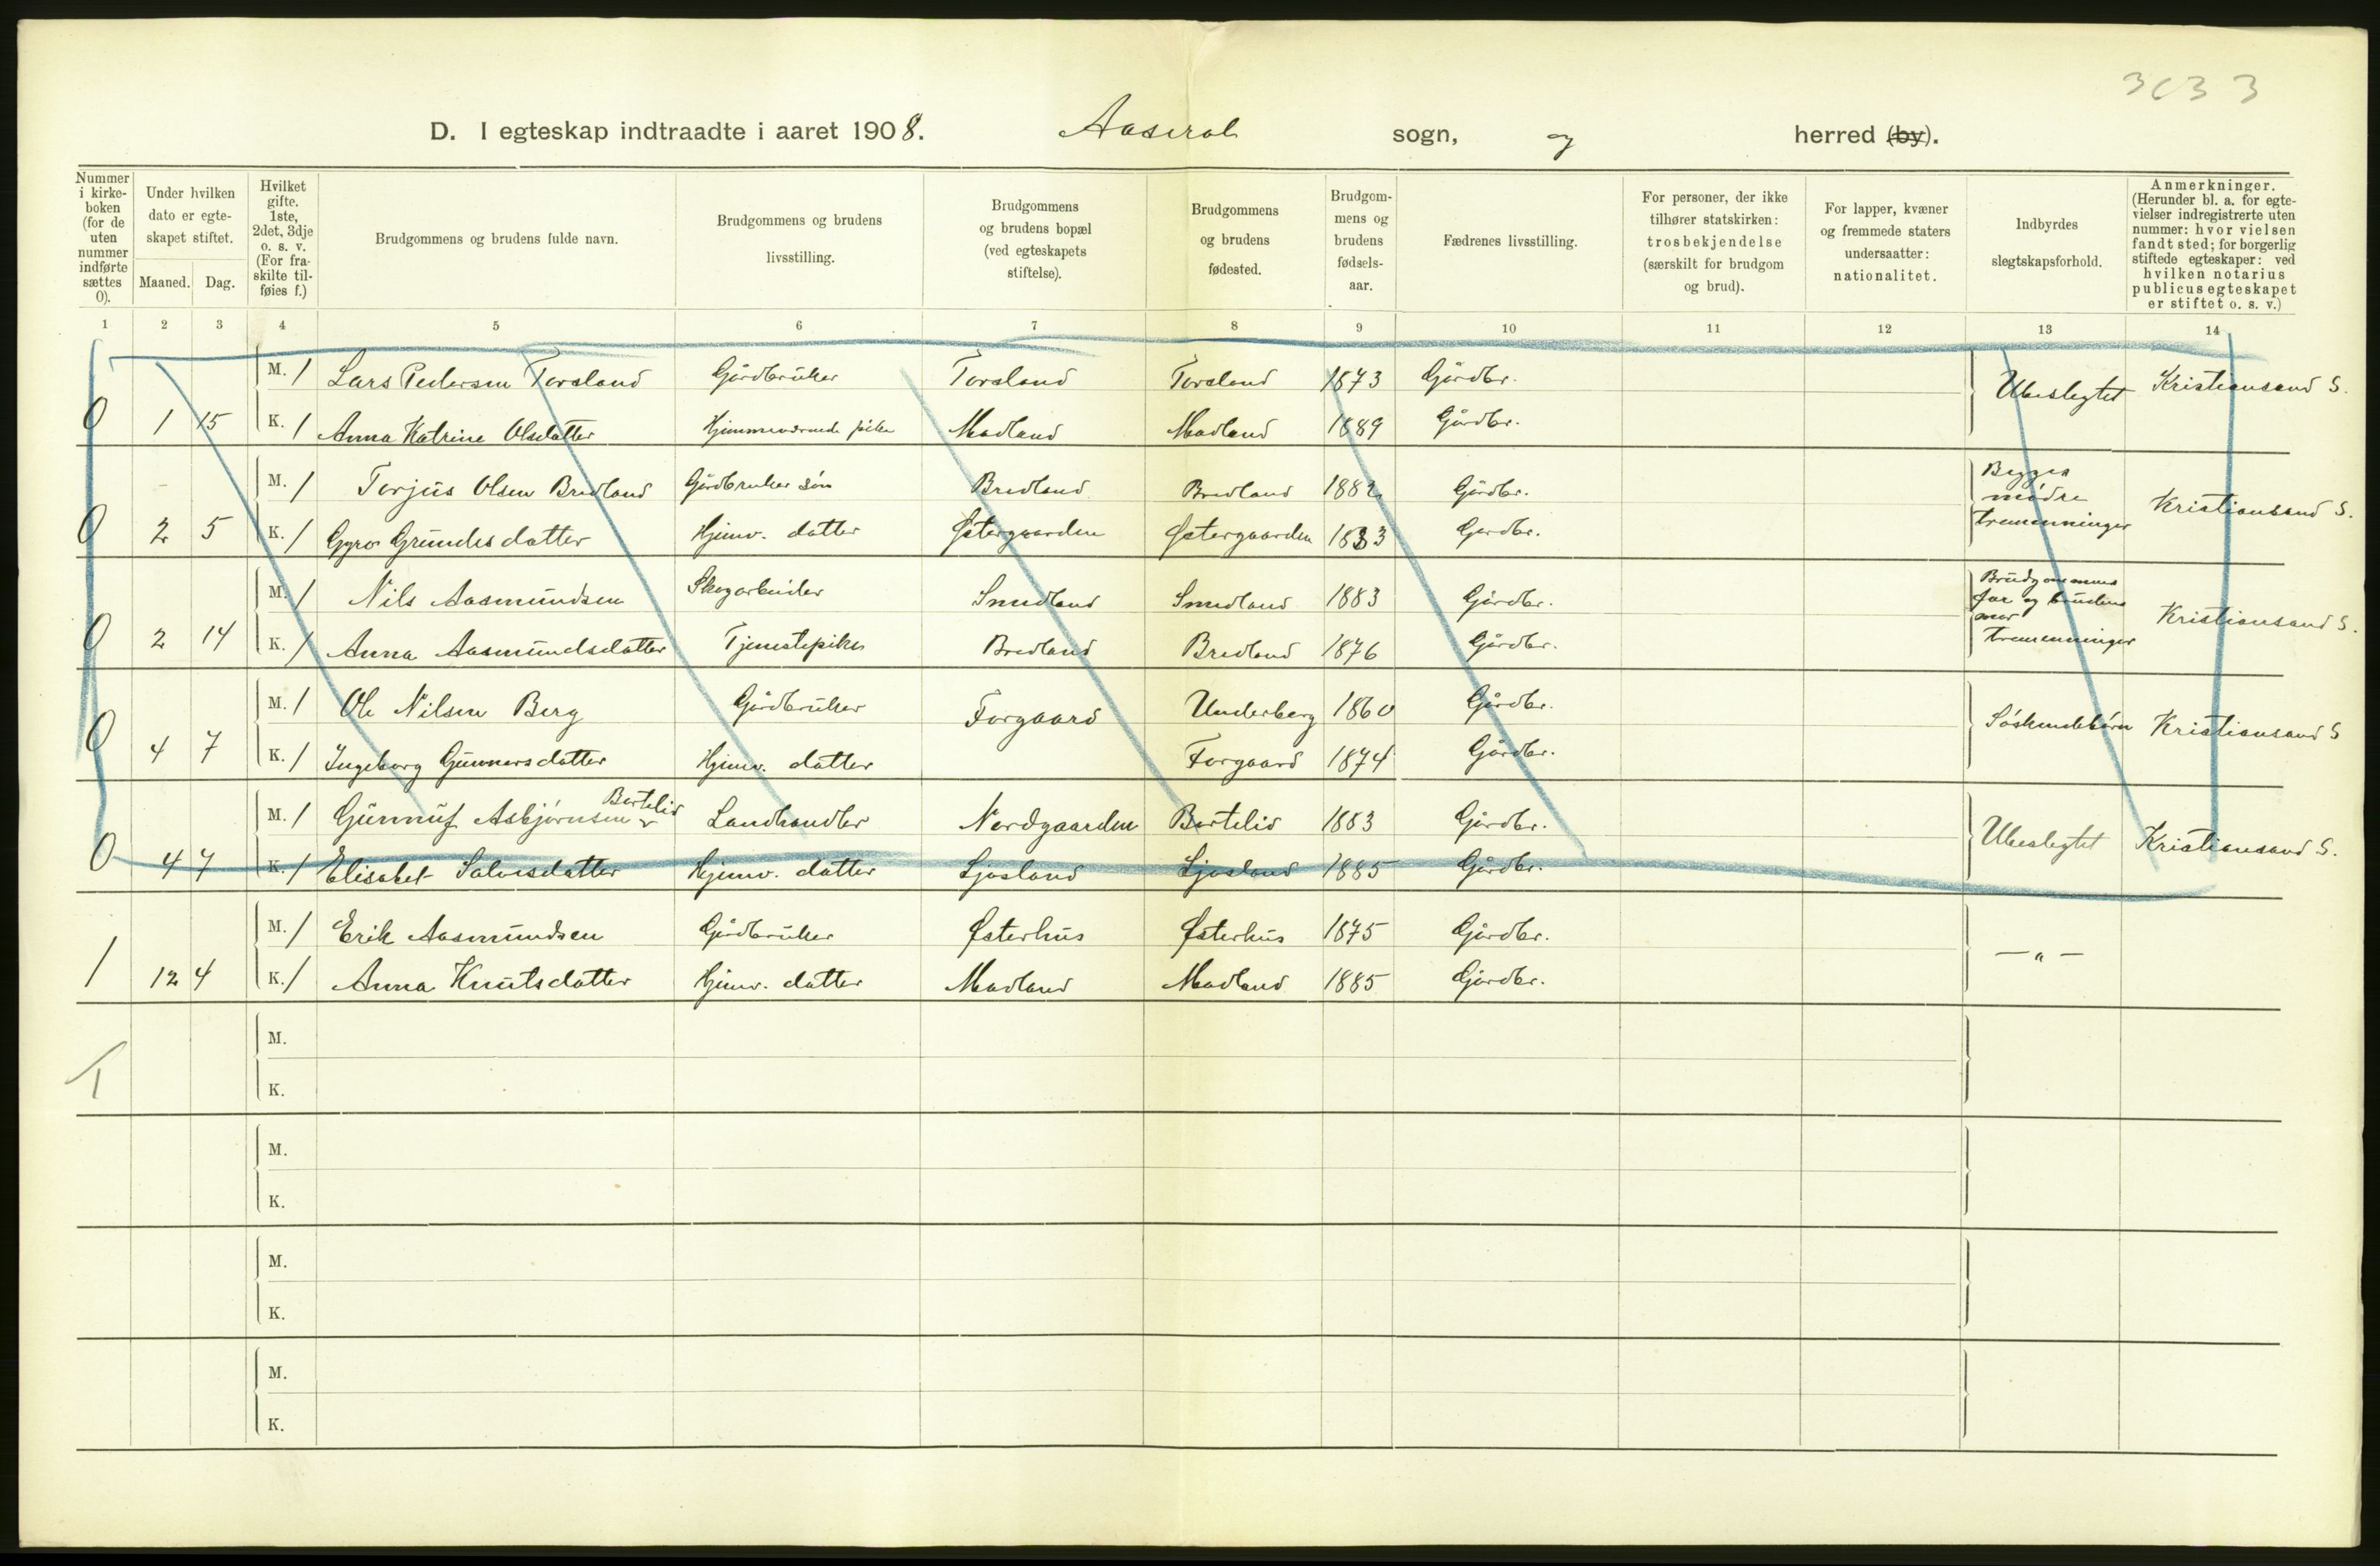 3033
D. I egteskap indtraadte i aaret 1908. Aaseral sogn, og herred (by).
Nummer i kirke-boken (for de uten nummer indførte sættes 0).
Under hvilken dato er egte-skapet stiftet.
Maaned. Dag.
Hvilket gifte. 1ste, 2det, 3dje o. s. v. (For fra-skilte til-føies f.)
Brudgommens og brudens fulde navn.
Brudgommens og brudens livsstilling.
Brudgommens og brudens bopæl (ved egteskapets stiftelse).
Brudgommens og brudens fødested.
Brudgom-mens og brudens fødsels-aar.
Fædrenes livsstilling.
For personer, der ikke tilhører statskirken: trosbekjendelse (særskilt for brudgom og brud).
For lapper, kvæner og fremmede staters undersaatter: nationalitet.
Indbyrdes slegtskapsforhold.
Anmerkninger. (Herunder bl. a. for egte-vielser indregistrerte uten nummer: hvor vielsen fandt sted; for borgerlig stiftede egteskaper: ved hvilken notarius publicus egteskapet er stiftet o. s. v.)
1 2 3 4 5 6 7 8 9 10 11 12 13 14
M. 1 Lars Pedersen Torsland Gårdbruker Torsland Torsland 1873 Gårdbr. Ubeslegtet Kristiansand S.
0 1 15 K. 1 Anna Katrine Olsdatter Hjemmeværende pike Madland Madland 1889 Gårdbr.
M. 1 Torjus Olsen Bredland Gårdbruker søn Bredland Bredland 1882 Gårdbr. Begges mødre tremenninger Kristiansand S.
0 2 5 K. 1 Gyro Grundesdatter Hjemv. datter Østergaarden Østergaarden 1883 Gardbr.
M. 1 Nils Aasmundsen Skogarbeider Smedland Smedland 1883 Gårdbr. Brudgommens far og brudens mor tremenninger Kristiansand S.
0 2 14 K. 1 Anna Aasmundsdatter Tjenestepike Bredland Bredland 1876 Gårdbr.
M. 1 Ole Nilsen Berg Gårdbruker Forgaard Underberg 1860 Gårdbr. Søskendebørn Kristiansand S
0 4 7 K. 1 Ingeborg Gunnarsdatter Hjemv. datter Forgaard 1874 Gårdbr.
M. 1 Gunnuf Asbjørnsen Bortelid Landhandler Nordgaarden Bortelid 1883 Gårdbr. Ubeslegtet Kristiansand S.
0 4 7 K. 1 Elisabet Salvesdatter Hjemv. datter Ljosland Ljosland 1885 Gårdbr.
M. 1 Erik Aasmundsen Gårdbruker Østerhus Østerhus 1875 Gårdbr. — " —
1 12 4 K. 1 Anna Knutsdatter Hjemv. datter Madland Madland 1885 Gårdbr.
M.
1
K.
M.
K.
M.
K.
M.
K.